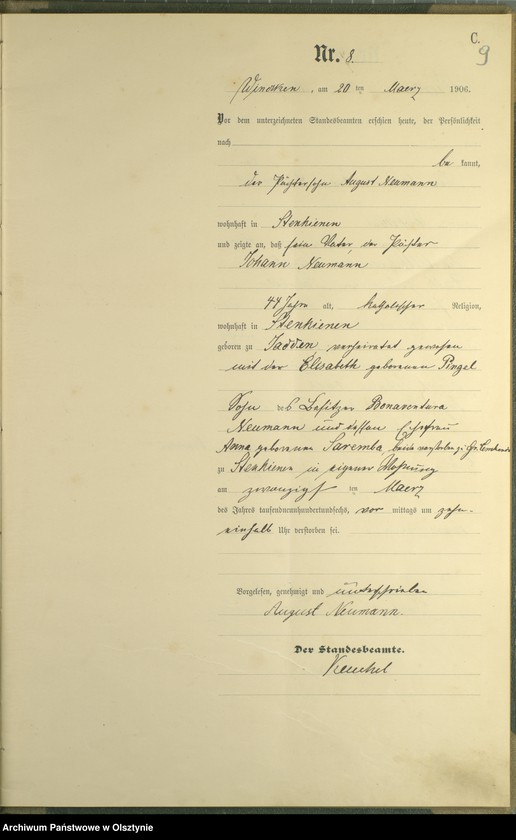 C.
9
Nr. 8.
am 20 ten Maerz 1906.
Vor dem unterzeichneten Standesbeamten erschien heute, der Persönlichkeit
nach
be kannt,
der Pächtersohn August Neumann
wohnhaft in Stenkienen
und zeigte an, daß sein Vater, der Pächter
Johann Neumann
44 Jahre alt, katholischer Religion,
wohnhaft in Stenkienen
geboren zu Jadden verheiratet gewesen
mit der Elisabeth geborenen Pingel
Sohn des Besitzer Bonaventura
Neumann und dessen Ehefrau
Anna geborenen Saremba, beide verstorben zu Gr.
zu Stenkienen in eigener Wohnung
am zwanzigsten Maerz
des Jahres tausendneunhundertundsechs, vor mittags um zehn-
einhalb Uhr verstorben sei.
Vorgelesen, genehmigt und unterschrieben
August Neumann.
Der Standesbeamte.
Archiwum Państwowe w Olsztynie